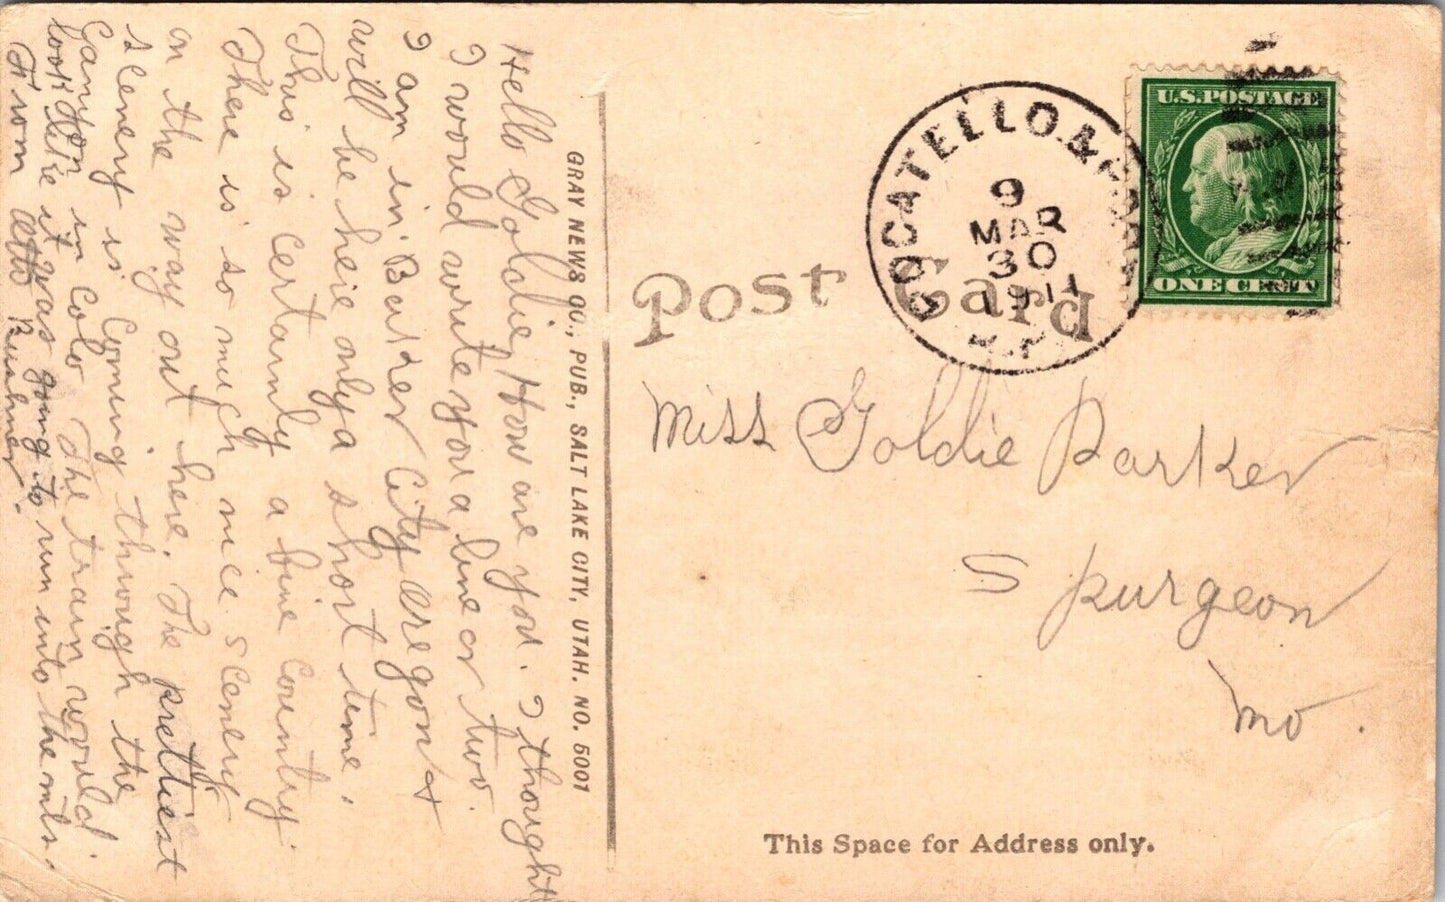 Hello Goldie, How are you. I thought
I would write you a line or two.
I am in Baker City Oregon &
will be here only a short time.
This is certainly a fine Country.
There is so much nice scenery
on the way out here. The prettiest
scenery is Coming through the
Canyon in Colo The train would
look like it was going to run into the mts.
From
GRAY NEWS CO., PUB., SALT LAKE CITY, UTAH. NO. 5001
Post Card
POCATELLO. &
9
MAR
30
1911
U.S. POSTAGE
ONE CENT
Miss Goldie Parker
Spurgeon
Mo.
This Space for Address only.